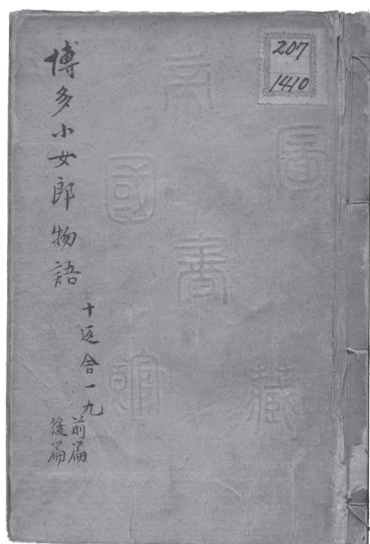 207
1410
博多小女郎物語
十返舎一九
前篇
後篇
帝國圖書館藏